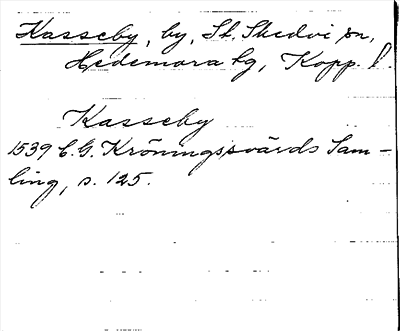 Kasseby, by, St. Skedvi sn,
Hedemora tg, Kopp. l.
Kasseby
1539 C.G. Kröningssvärds Sam-
ling, s. 125.